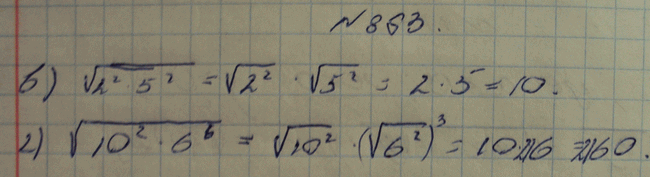 № 863.
б) √2² · 5² = √2² · √5² = 2 · 5 = 10.
г) √10² · 6⁶ = √10² · (√6²)³ = 10·216 = 2160.